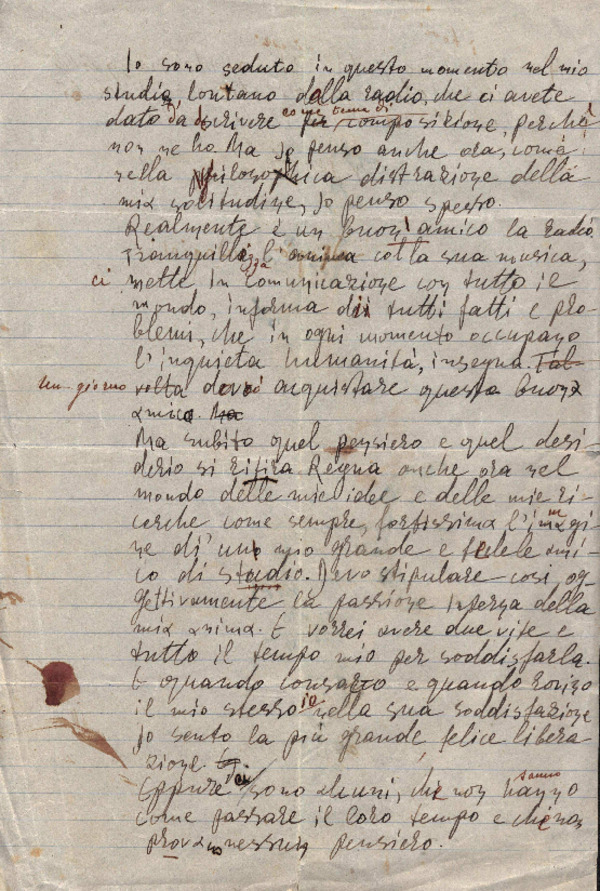 Io sono seduto in questo momento nel mio
studio lontano dalla radio, che ci avete
dato da scrivere come tema di composizione, perchè
non ne ho. Ma Jo penso anche ora, come
nella philosophica distrazione della
mia solitudine, Jo penso spesso.
Realmente è un buon amico la radio.
Tranquillizza l'anima colla sua musica,
ci mette in comunicazione con tutto il
mondo, informa di tutti fatti e pro-
blemi, che in ogni momento occupano
l'inquieta humanità, insegna. Tal-
Un giorno volta dovrò acquistare questa buona
amica. Ma
Ma subito quel pensiero e quel desi-
derio si ritira. Regna anche ora nel
mondo delle mie idee e delle mie ri-
cerche come sempre, fortissima l'imagi-
ne di un mio grande e fedele ami-
co di studio. Devo stipulare così, og-
gettivamente la passione interna della
mia anima. E vorrei avere due vite e
tutto il tempo mio per soddisfarla.
E quando consacro e quando rovino
il mio stesso io nella sua soddisfazione
Jo sento la più grande, felice libera-
zione.
Eppure sono alcuni, che non hanno sanno
come passare il loro tempo e che non
provano nessun pensiero.